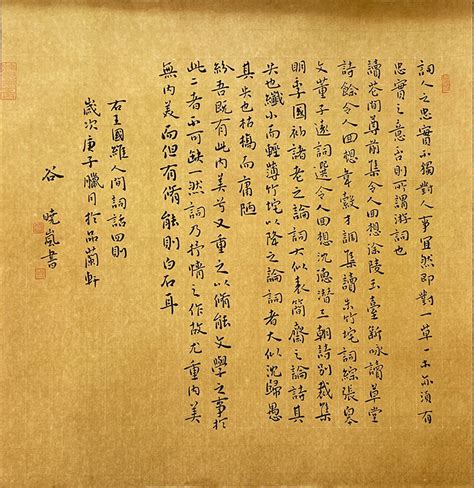 詞人之忠實不獨對人事宜然即對一草一木亦須有
忠實之意否則所謂游詞也
讀花間尊前集令人回想徐陵玉臺新詠讀草堂
詩餘令人回想韋縠才調集讀朱竹垞詞綜張皋
文董子遠詞選令人回想沈德潛三朝詩別裁集
明季國初諸老之論詞大似袁簡齋之論詩其
失也纖小而輕薄竹垞以降之論詞者大似沈歸愚
其失也枯槁而庸陋
紛吾既有此內美兮又重之以脩能文學之事於
此二者不可缺一然詞乃抒情之作故尤重內美
無內美而但有脩能則白石耳
右王國維人間詞話四則
歲次庚子臘月於品蘭軒
谷曉嵐書